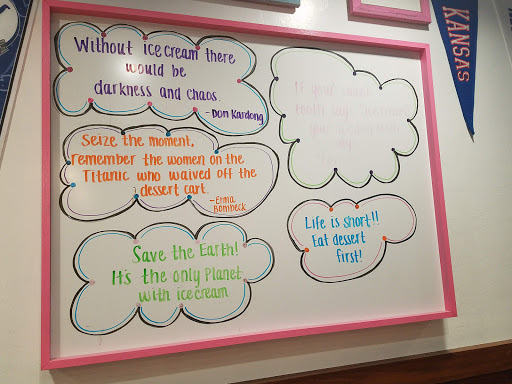 Without ice cream there
would be
darkness and chaos.
- Don Kardong
Seize the moment,
remember the women on the
Titanic who waived off the
dessert cart.
-Erma
Bombeck
Save the Earth!
It's the only Planet
with ice cream
If you
Life is short!!
Eat dessert
first!
KANSAS